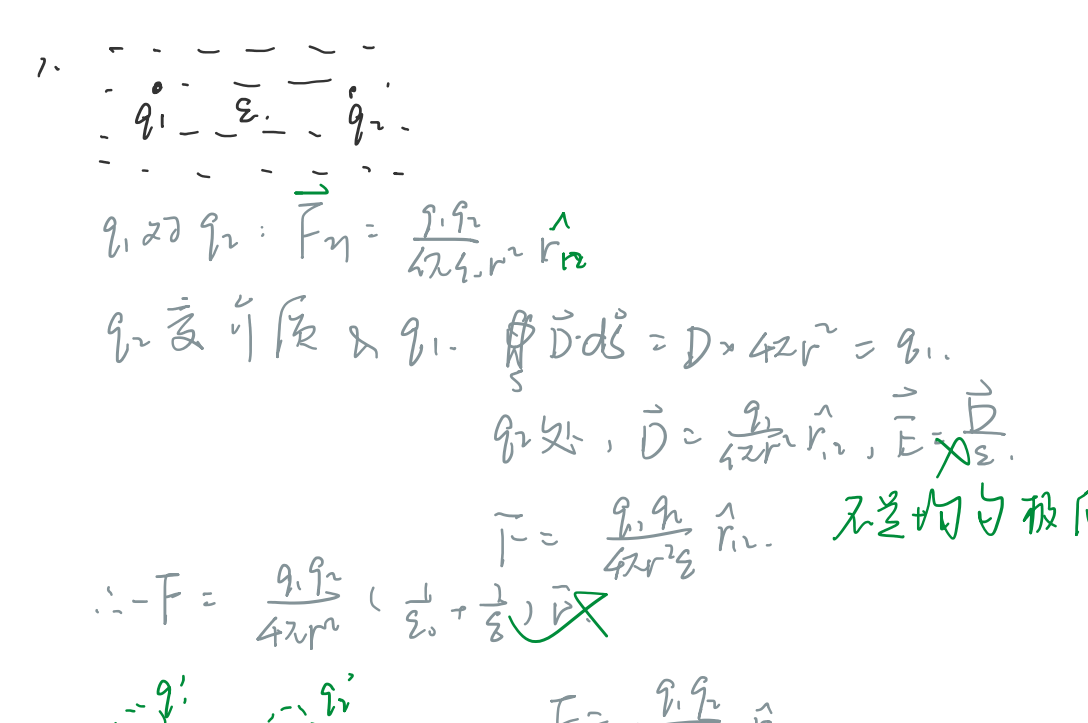 1.
q₁ ε. q₂
q₁对q₂: F⃗₂₁ = q₁q₂/(4πε₀r²) r̂₁₂
q₂受介质&q₁. ∯_S D⃗·dS⃗ = D×4πr² = q₁.
q₂处, D⃗ = q₁/(4πr²) r̂₁₂, E⃗ = D⃗/ε.
F = q₁q₂/(4πr²ε) r̂₁₂. 不是均匀极
∴ F = q₁q₂/(4πr²) (1/ε₀ + 1/ε) r̂.
q₁' q₂' F = q₁q₂